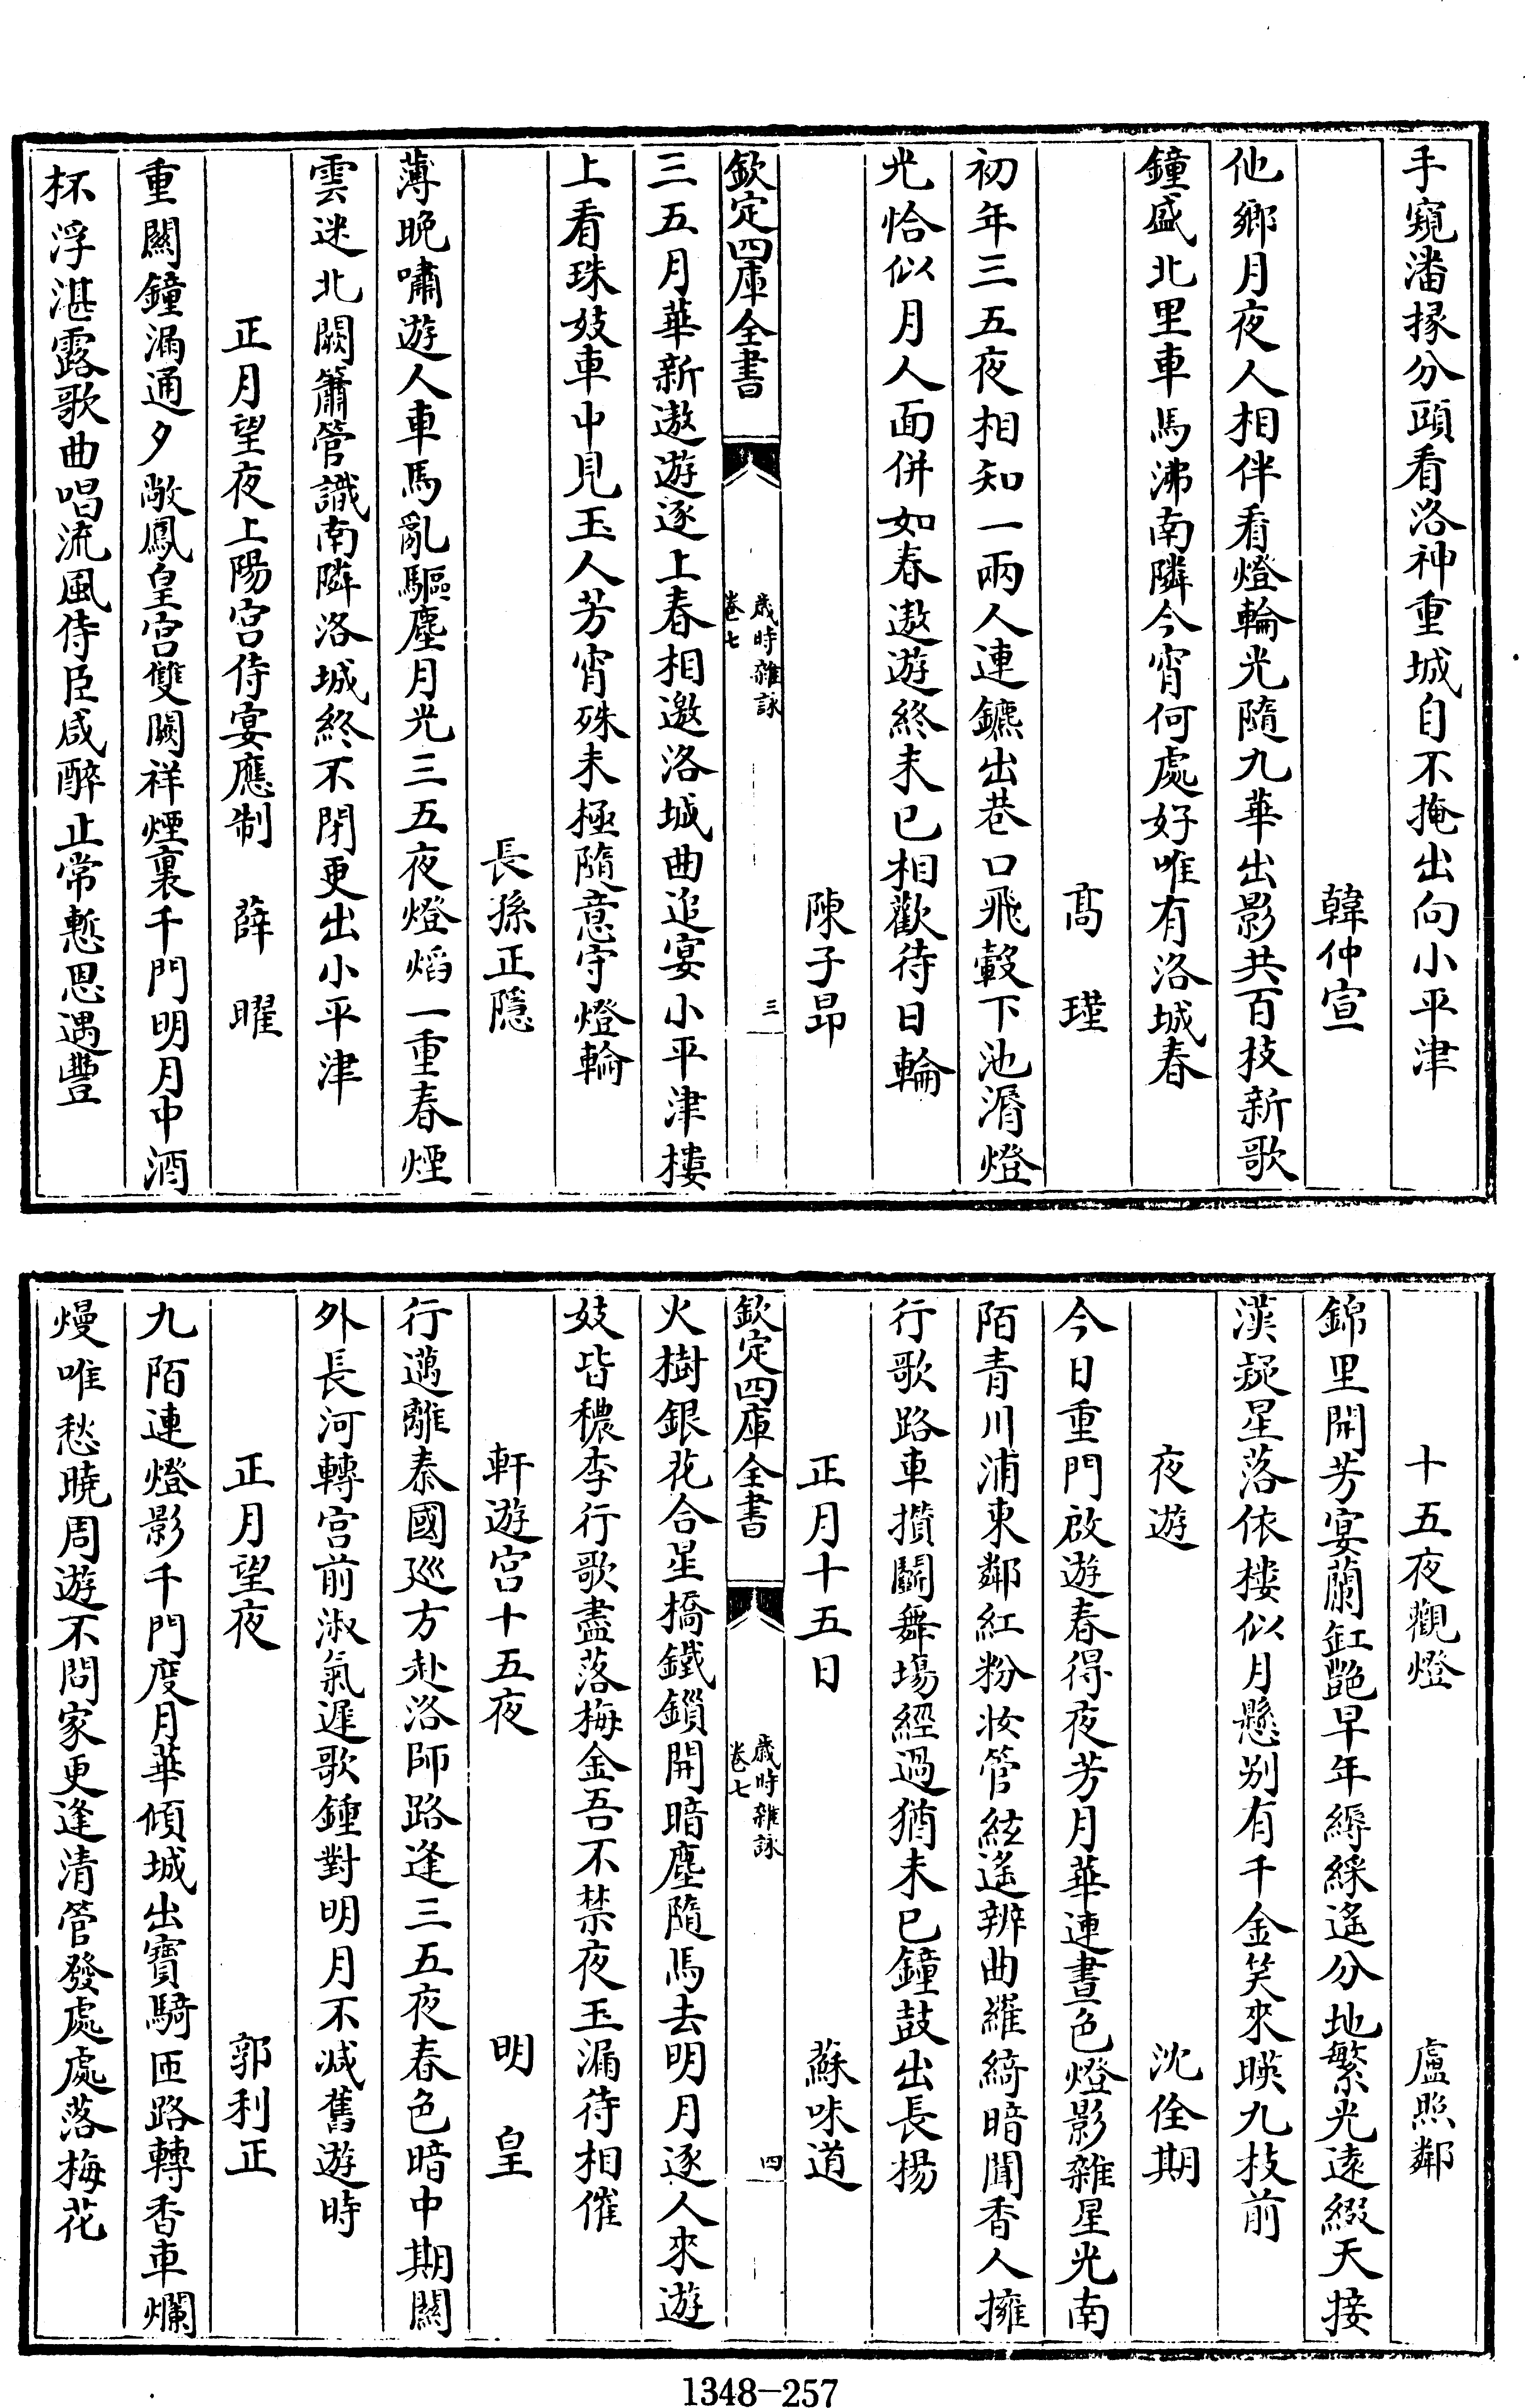 手窺潘掾分頭看洛神重城自不掩出向小平津
韓仲宣
他鄉月夜人相伴看燈輪光隨九華出影共百枝新歌
鐘盛北里車馬沸南隣今宵何處好唯有洛城春
高瑾
初年三五夜相知一兩人連鑣出巷口飛轂下池漘燈
光恰似月人面併如春遨遊終未已相歡待日輪
陳子昂
欽定四庫全書
歲時雜詠
卷七
三
三五月華新遨遊逐上春相邀洛城曲追宴小平津樓
上看珠妓車中見玉人芳宵殊未極隨意守燈輪
長孫正隱
薄晚嘯遊人車馬亂驅塵月光三五夜燈熖一重春煙
雲迷北闕簫管識南隣洛城終不閉更出小平津
正月望夜上陽宮侍宴應制 薛曜
重關鐘漏通夕敞鳳皇宮雙闕祥煙裏千門明月中酒
杯浮湛露歌曲唱流風侍臣咸醉止常慙恩遇豐
十五夜觀燈 盧照鄰
錦里開芳宴蘭缸艷早年縟綵遙分地繁光遠綴天接
漢疑星落依樓似月懸別有千金笑來暎九枝前
夜遊 沈佺期
今日重門啟遊春得夜芳月華連晝色燈影雜星光南
陌青川浦東鄰紅粉妝管絃遙辨曲羅綺暗聞香人擁
行歌路車攢鬭舞場經過猶未已鐘鼓出長楊
正月十五日 蘇味道
欽定四庫全書
歲時雜詠
卷七
四
火樹銀花合星橋鐵鎖開暗塵隨馬去明月逐人來遊
妓皆穠李行歌盡落梅金吾不禁夜玉漏待相催
軒遊宮十五夜 明皇
行邁離秦國廵方赴洛師路逢三五夜春色暗中期關
外長河轉宮前淑氣遲歌鍾對明月不減舊遊時
正月望夜 郭利正
九陌連燈影千門度月華傾城出寶騎匝路轉香車爛
熳唯愁曉周遊不問家更逢清管發處處落梅花
1348-257